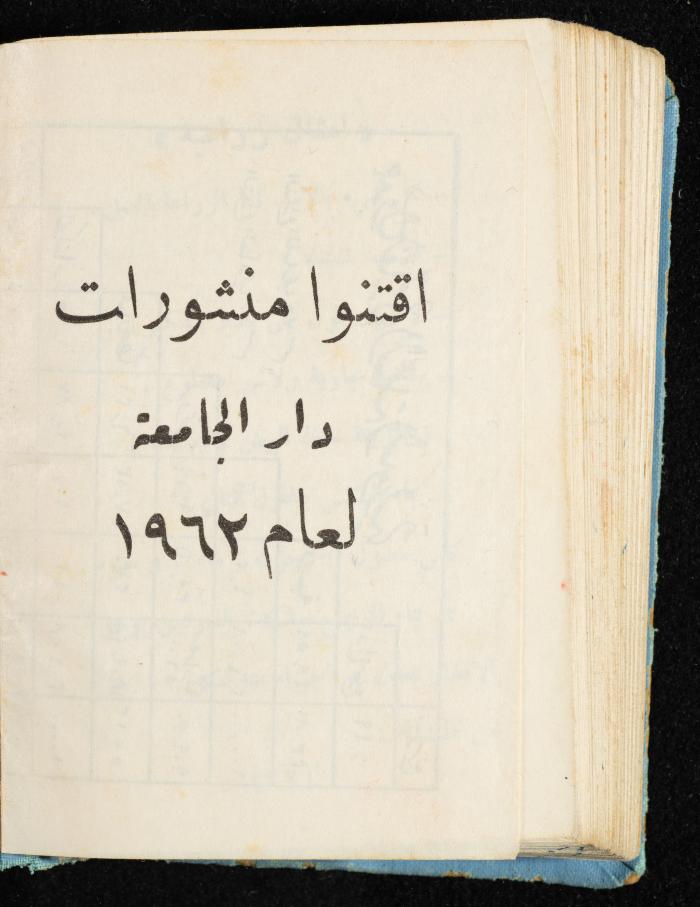 اقتنوا منشورات
دار الجامعة
لعام ١٩٦٢